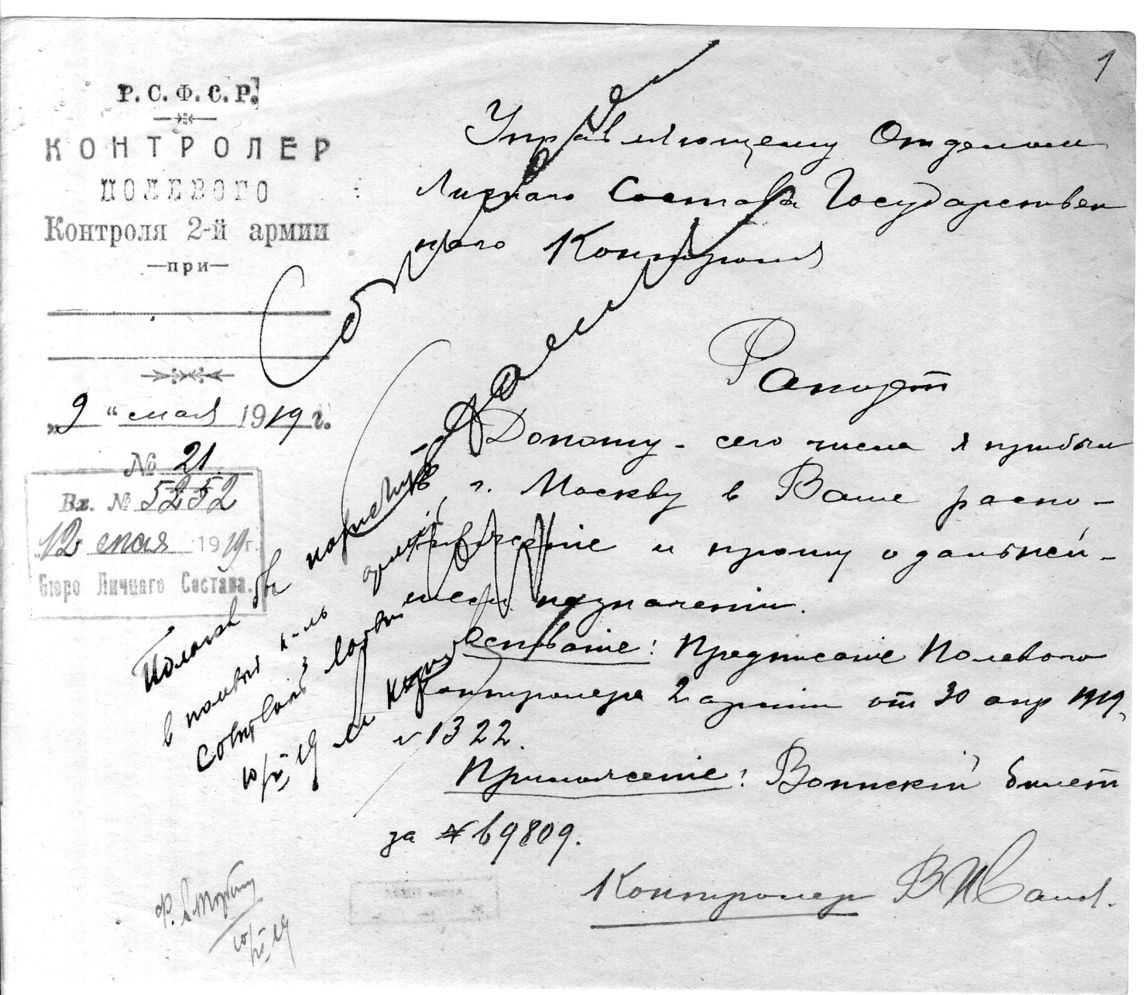 1
Р.С.Ф.С.Р.
КОНТРОЛЕР
ПОЛЕВОГО
Контроля 2-й армии
—при—
„9“ мая 1919 г.
№ 21
Вх. № 5252
12 мая 1919 г.
Бюро Личнаго Состава.
Управляющему Отделом
Личнаго Состава Государствен
наго Контроля
Рапорт
Доношу - сего числа я прибыл
в г. Москву в Ваше распо-
ряжение и прошу о дальней-
шем назначении.
Основание: Предписание Полевого
Контролера 2 армии от 30 апр 1919.
№ 1322.
Приложение: Воинский билет
за № 69809.
Контролер В Иванов.
Полагал бы
в полевой к-ль армии
советской Латвии
10/V 19
10/V 19